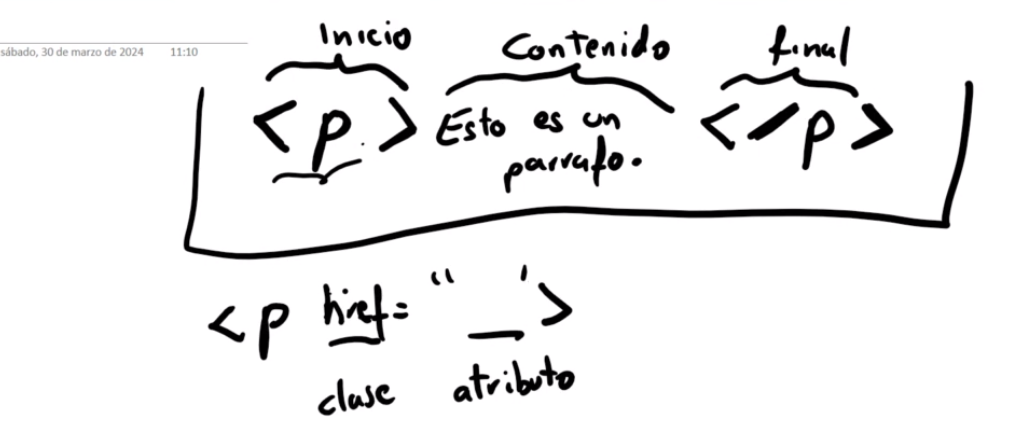 sábado, 30 de marzo de 2024 11:10
Inicio Contenido final
<p> Esto es un </p>
parrafo.
<p href= "__'>
clase atributo